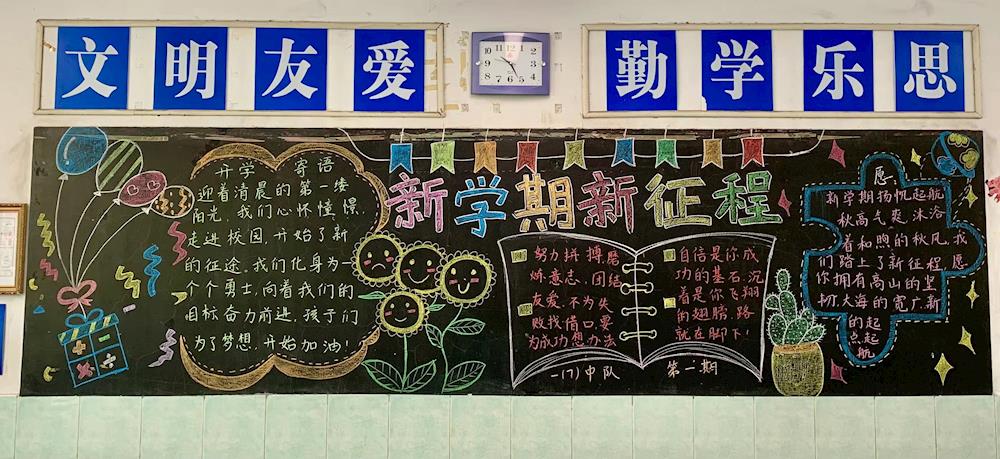 文明友爱
勤学乐思
开学 寄语
迎着清晨的第一缕
阳光,我们心怀憧憬,
走进校园,开始了新
的征途。我们化身为一
个个勇士,向着我们的
目标奋力前进,孩子们
为了梦想,开始加油!
新学期新征程
努力拼搏,磨
娇意志,团结
友爱,不为失
败找借口要
为成功想办法
自信是你成
功的基石,沉
着是你飞翔
的翅膀,路
就在脚下!
一(7)中队
第一期
愿:
新学期扬帆起航
秋高气爽,沐浴
着和煦的秋风,我
们踏上了新征程,愿
你拥有高山的坚
韧,大海的宽广新
的起
点起
航